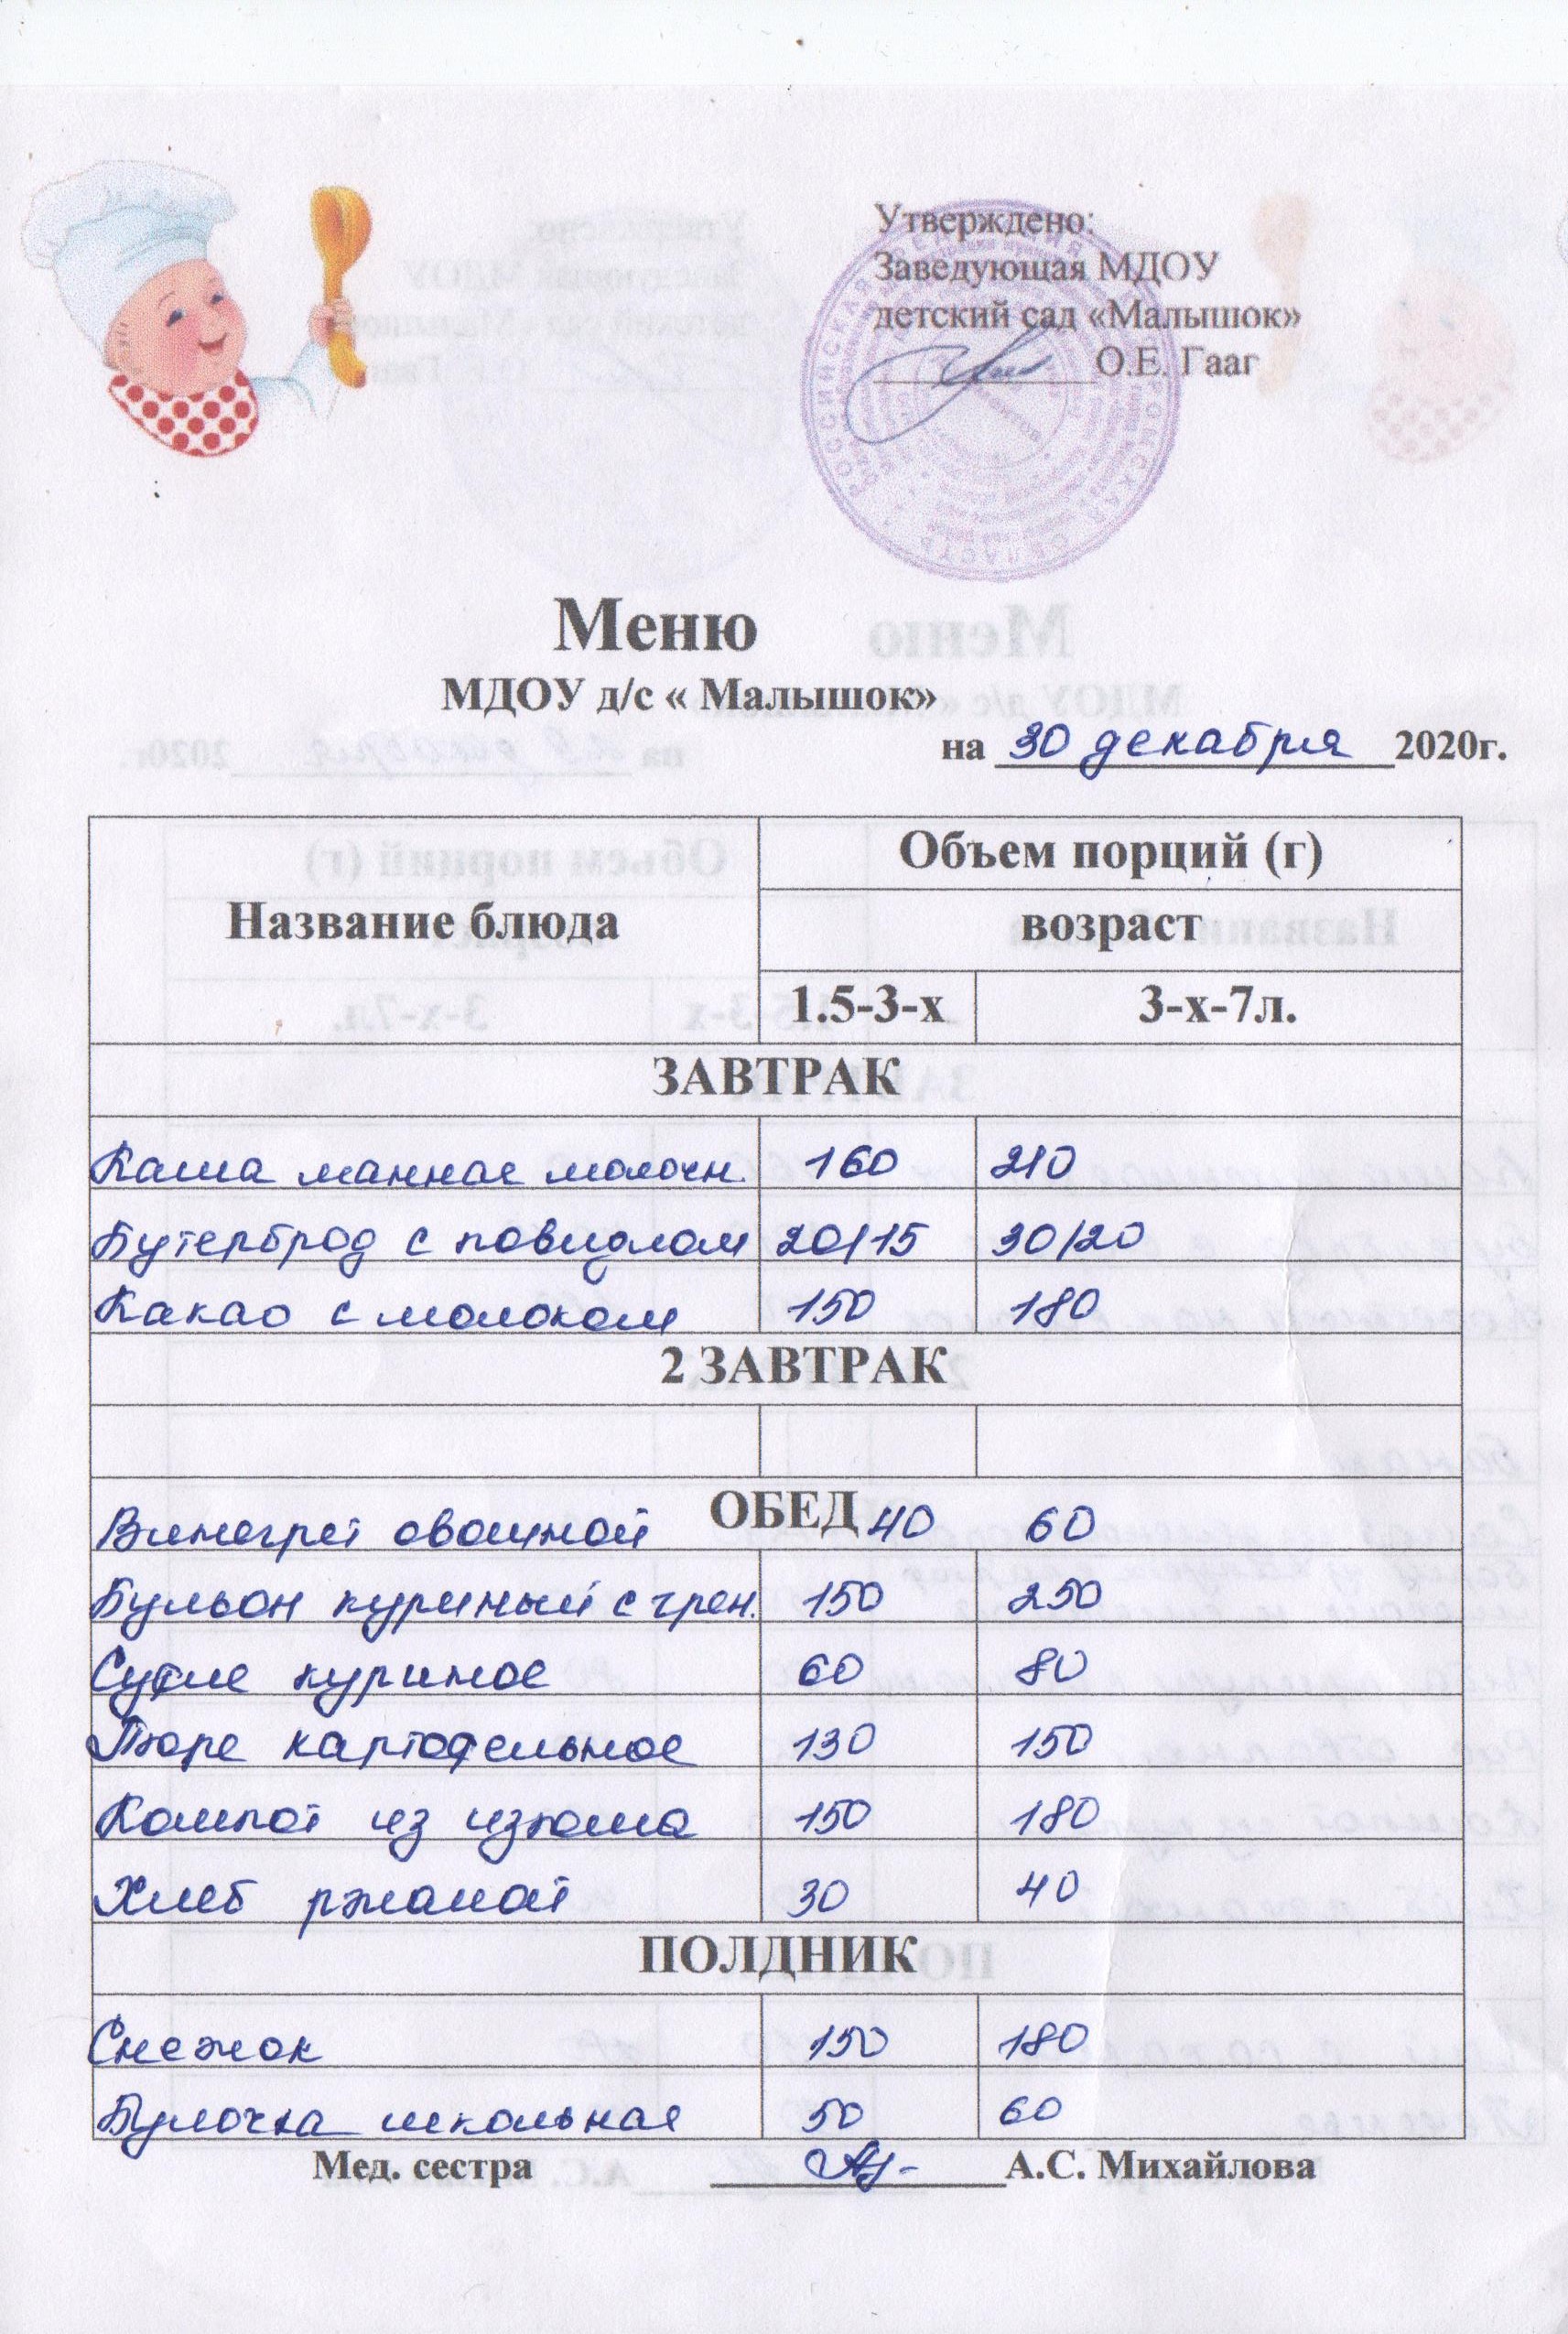 Утверждено:
Заведующая МДОУ
детский сад «Малышок»
О.Е. Гааг
РОССИЙСКАЯ ФЕДЕРАЦИЯ КОСТРОМСКАЯ ОБЛАСТЬ
Меню
МДОУ д/с « Малышок»
на 30 декабря 2020г.
Название блюда Объем порций (г)
возраст
1.5-3-х 3-х-7л.
ЗАВТРАК
Каша манная молочн. 160 210
Бутерброд с повидлом 20/15 30/20
Какао с молоком 150 180
2 ЗАВТРАК
ОБЕД
Винегрет овощной 40 60
Бульон куриный с грен. 150 250
Суфле куриное 60 80
Пюре картофельное 130 150
Компот из изюма 150 180
Хлеб ржаной 30 40
ПОЛДНИК
Снежок 150 180
Булочка школьная 50 60
Мед. сестра А.С. Михайлова